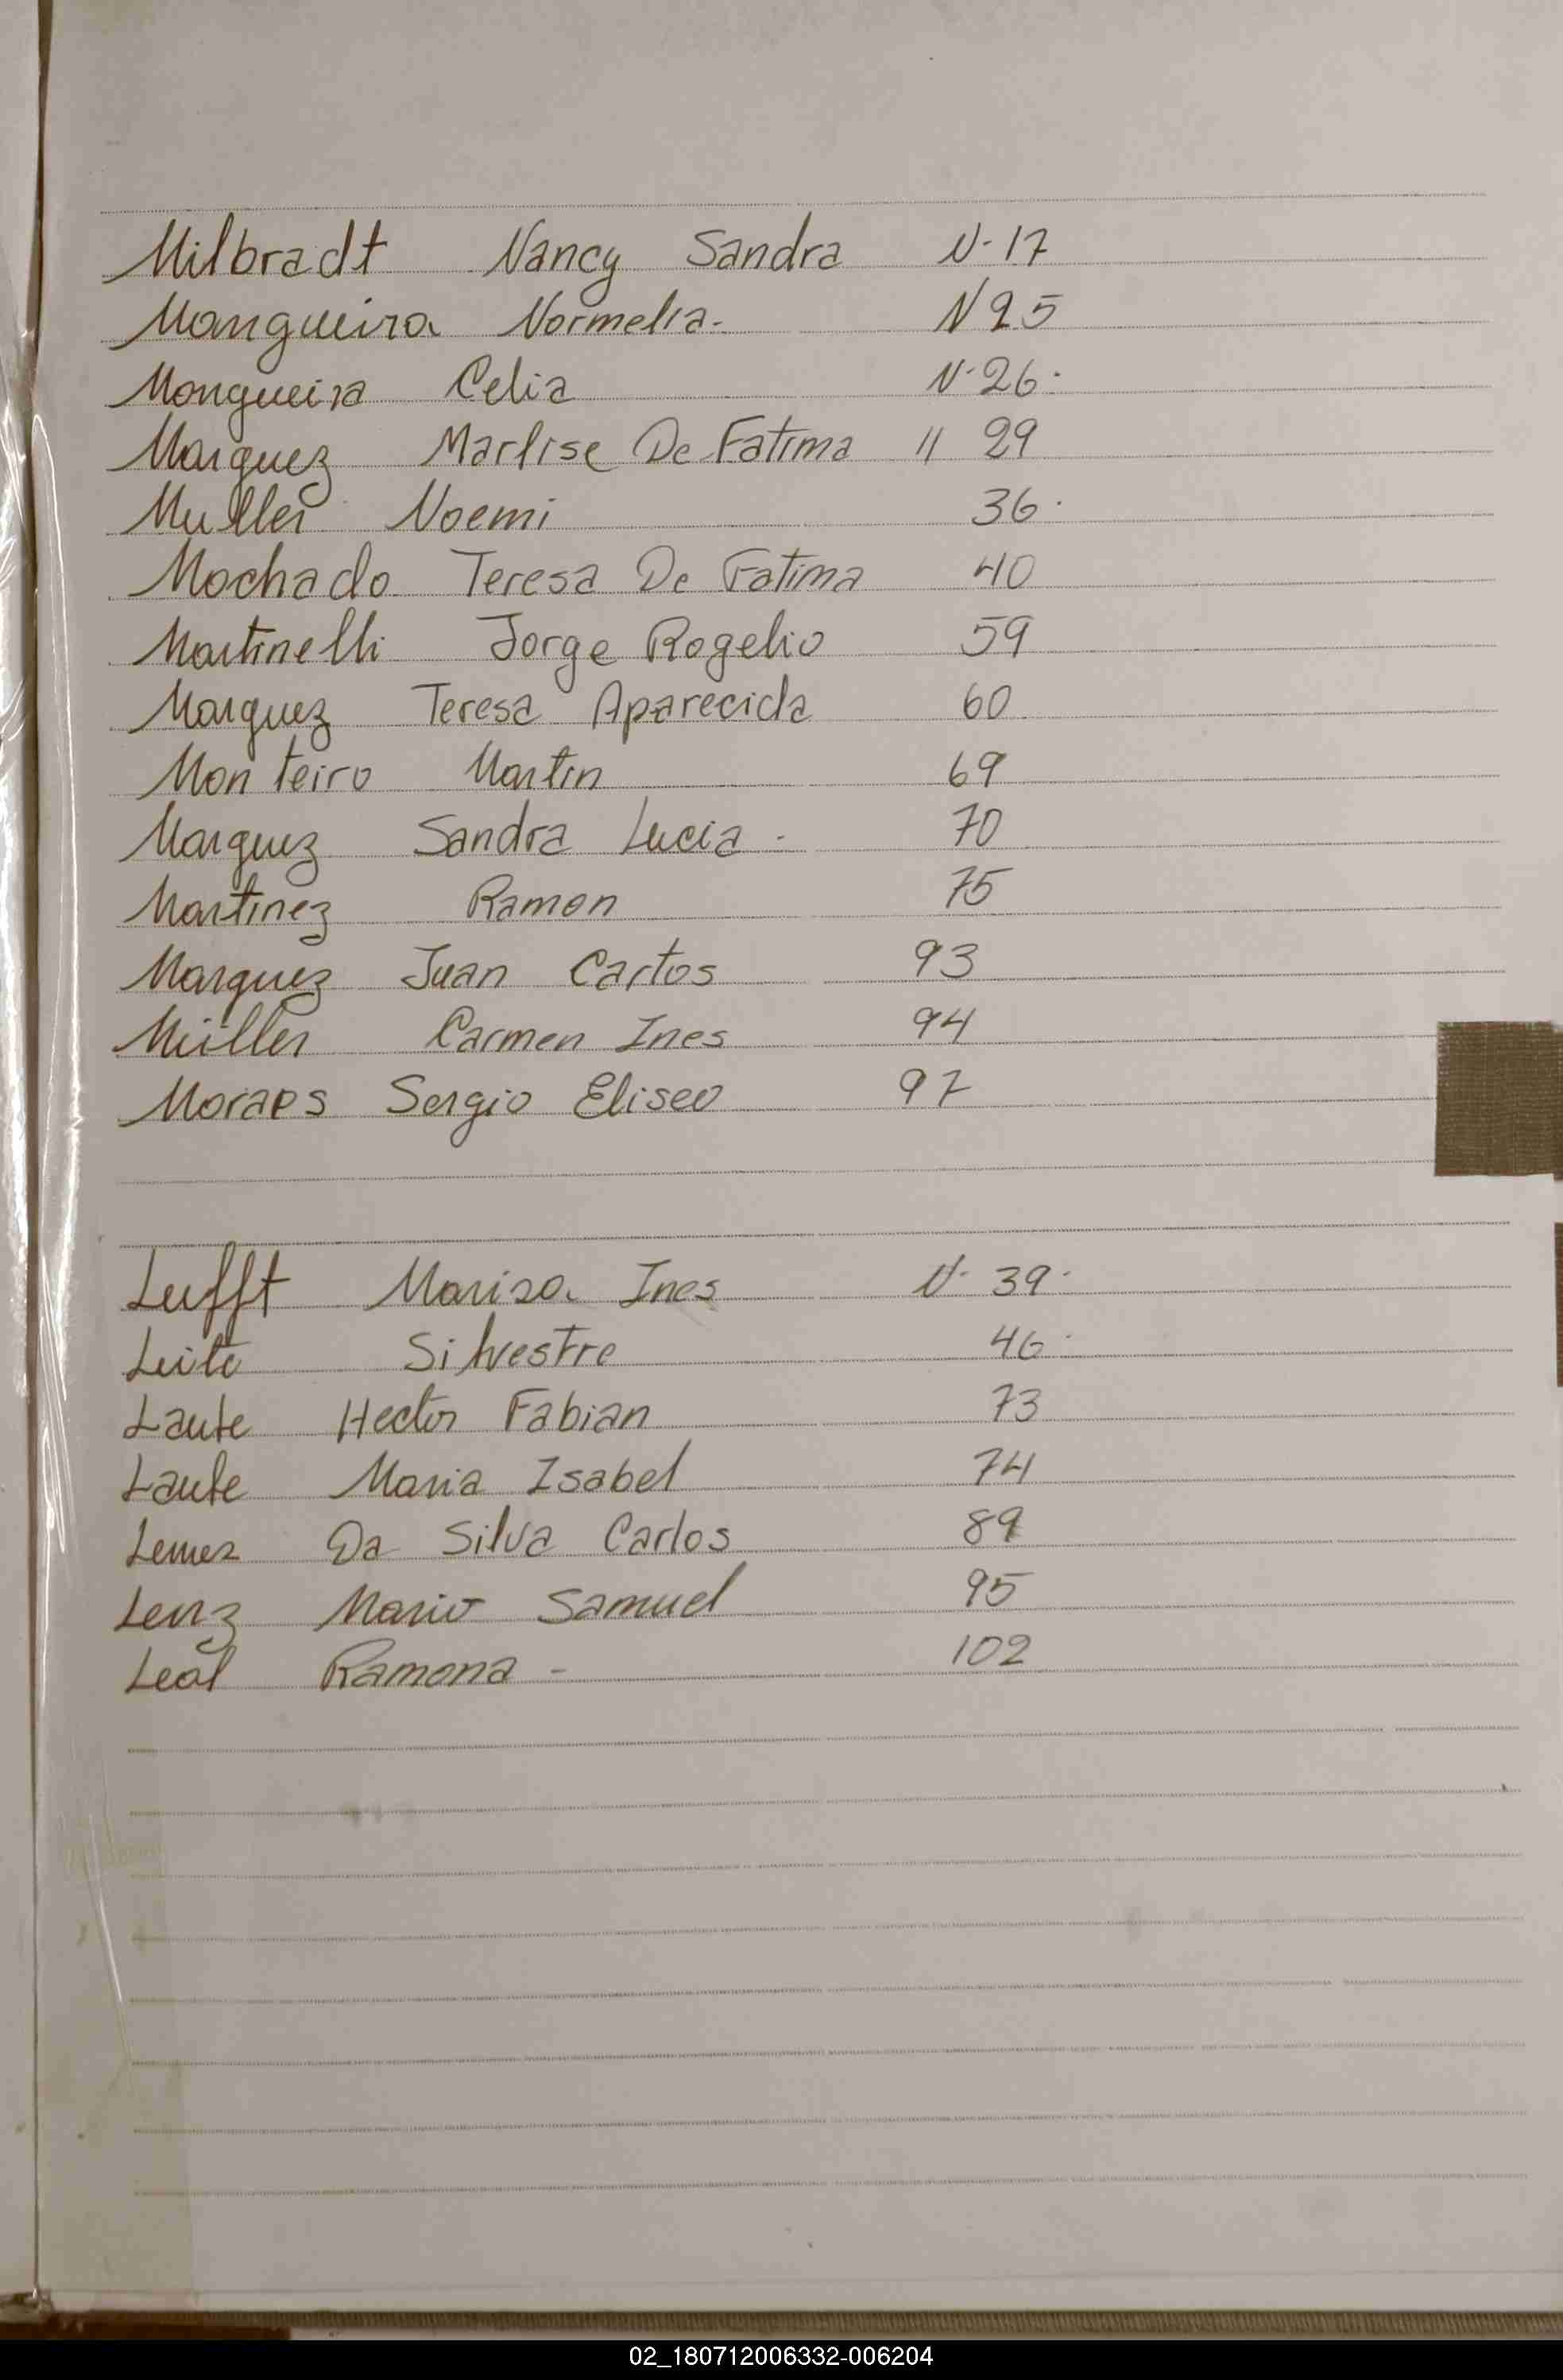 Milbradt Nancy Sandra N· 17
Mangueira Normelia. N 25
Mangueira Celia N· 26·
Marquez Marlise De Fatima // 29
Muller Noemi 36·
Machado Teresa De Fatima 40
Martinelli Jorge Rogelio 59
Marquez Teresa Aparecida 60
Monteiro Martin 69
Marquez Sandra Lucia - 70
Martinez Ramon 75
Marquez Juan Carlos 93
Müller Carmen Ines 94
Moraes Sergio Eliseo 97
Lufft Marisa Ines N· 39·
Leite Silvestre 46·
Laute Hector Fabian 73
Laute Maria Isabel 74
Lemes Da Silva Carlos 89
Lenz Mario Samuel 95
Leal Ramona - 102
02_180712006332-006204